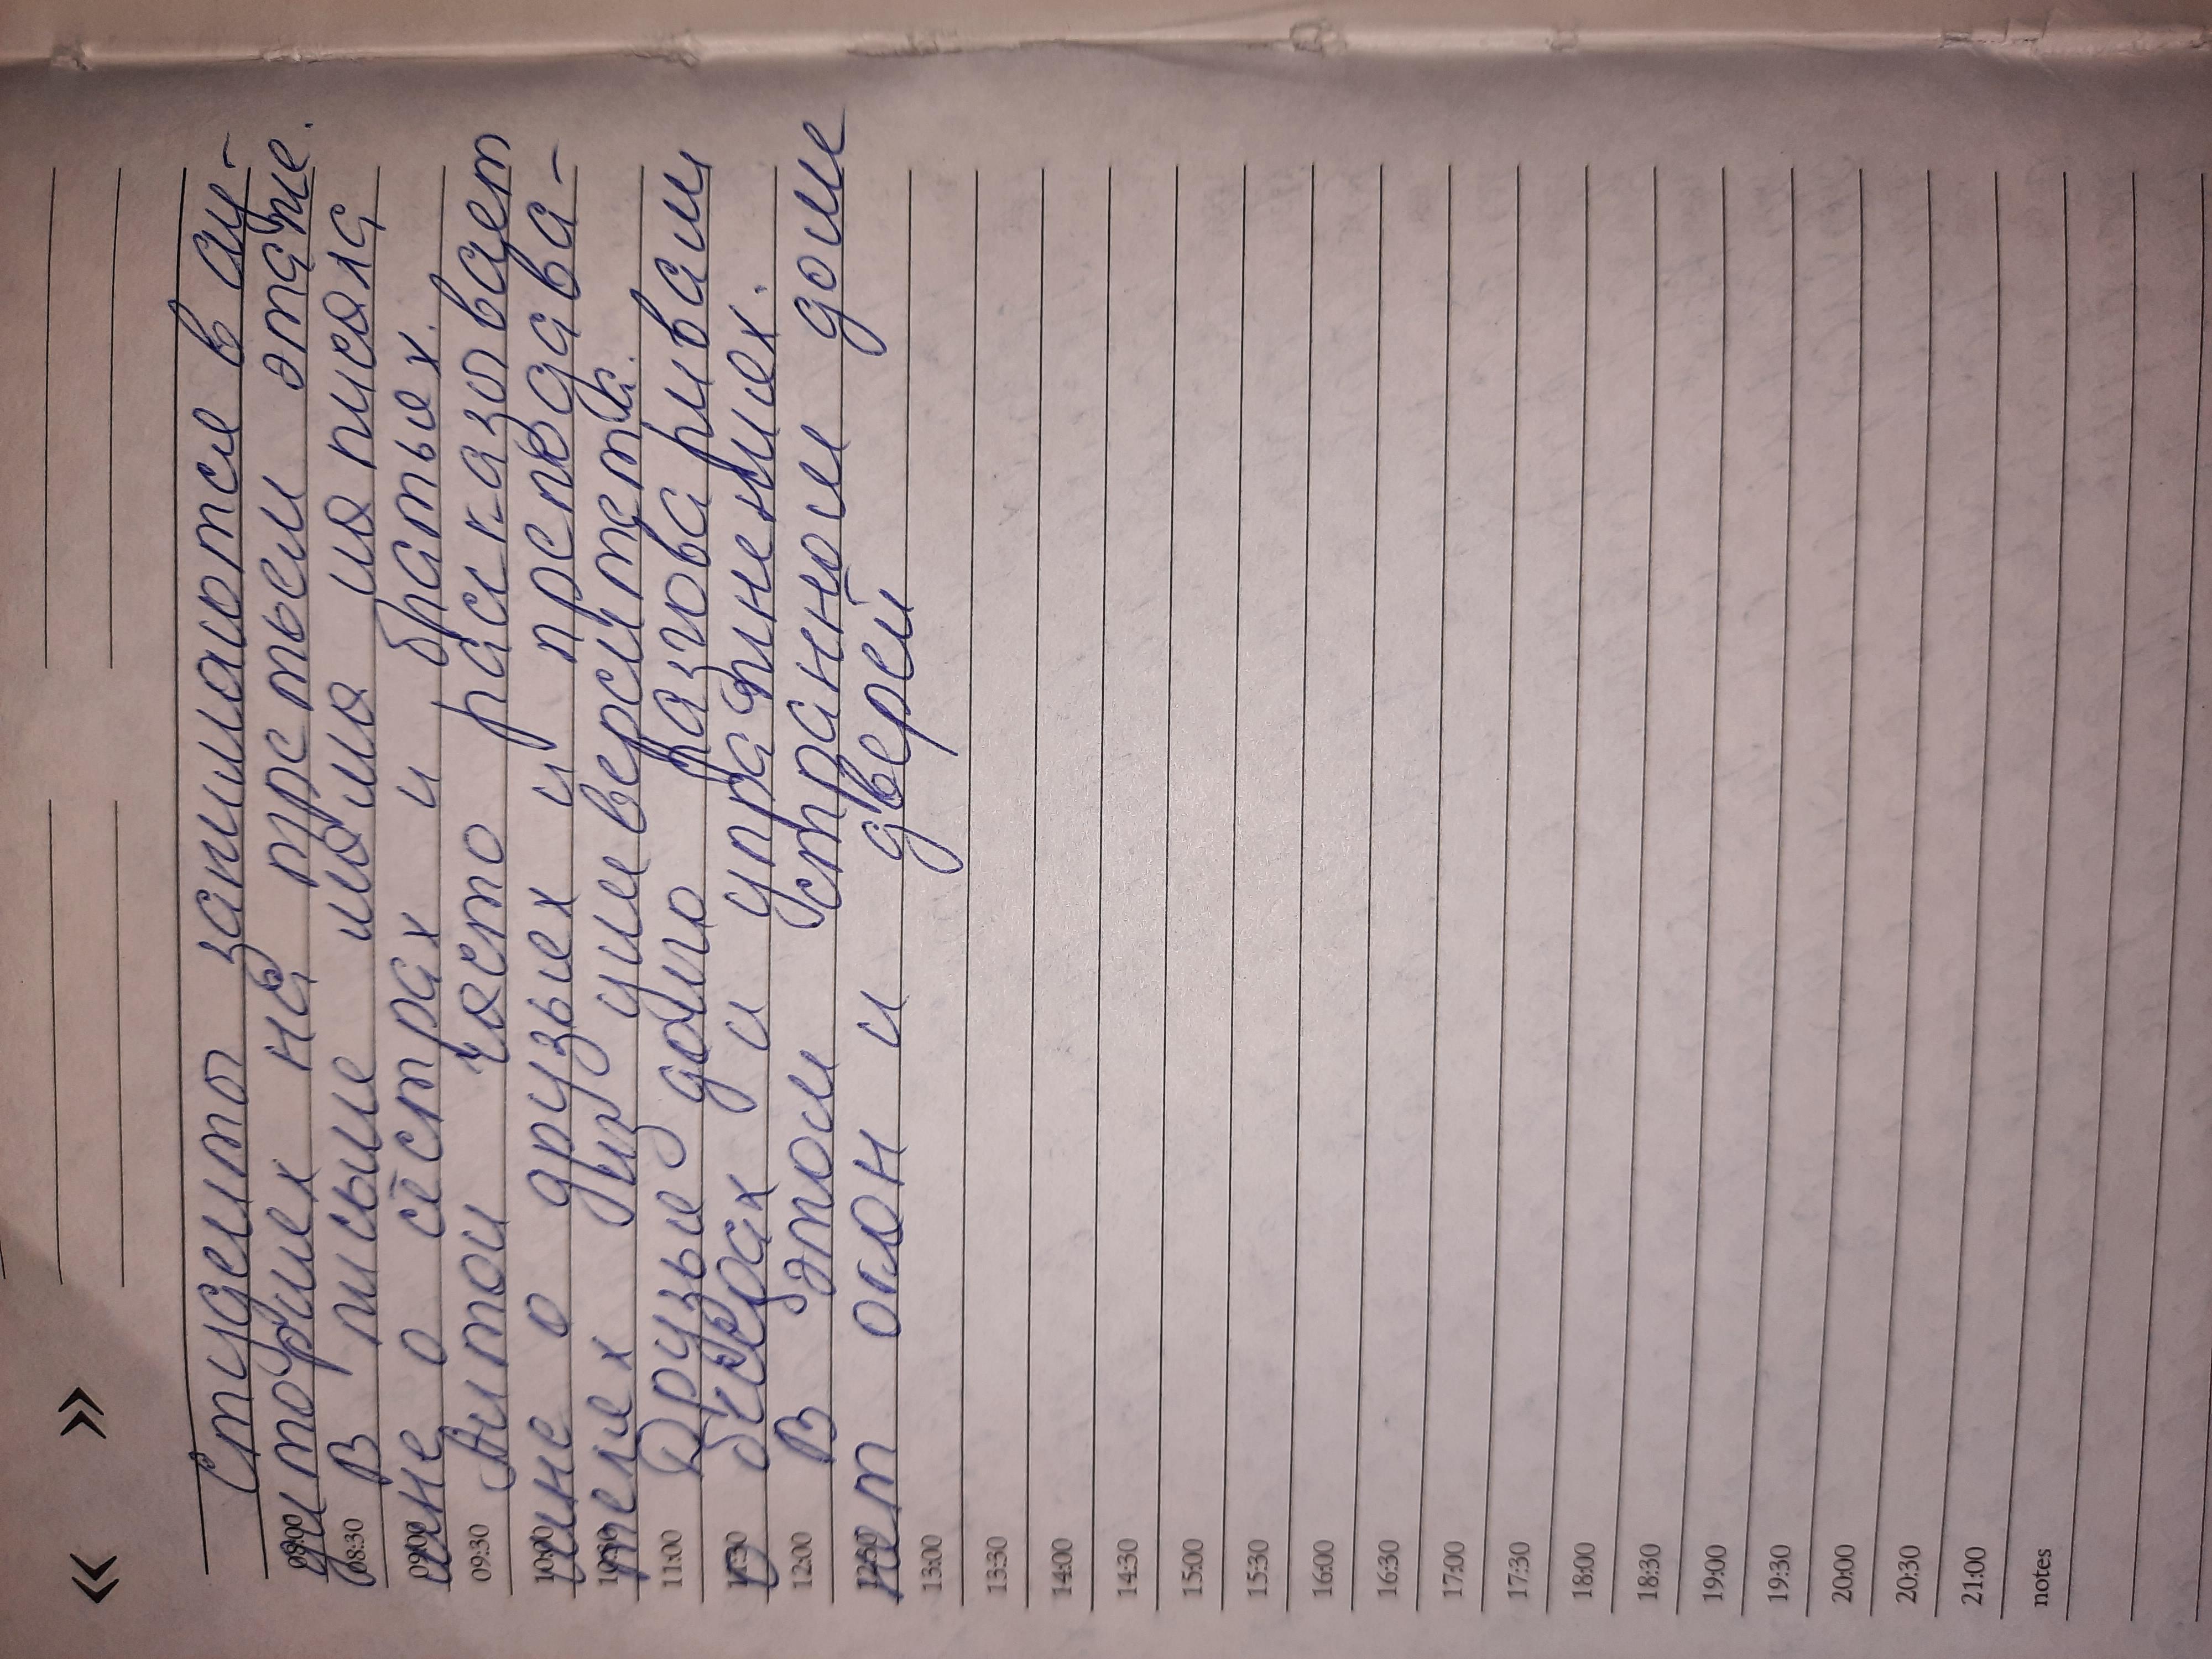 « »
Студенты занимаются в ау-
08:00 диториях на третьем этаже.
08:30 В письме мама написала
09:00 мне о сёстрах и братьях.
09:30 Антон часто расказовает
10:00 мне о друзьях и преподава-
10:30 телях университета.
11:00 Друзья долго разговаривали
11:30 о беседах и упражнениях.
12:00 В этом странном доме
12:30 нет окон и дверей
13:00
13:30
14:00
14:30
15:00
15:30
16:00
16:30
17:00
17:30
18:00
18:30
19:00
19:30
20:00
20:30
21:00
notes